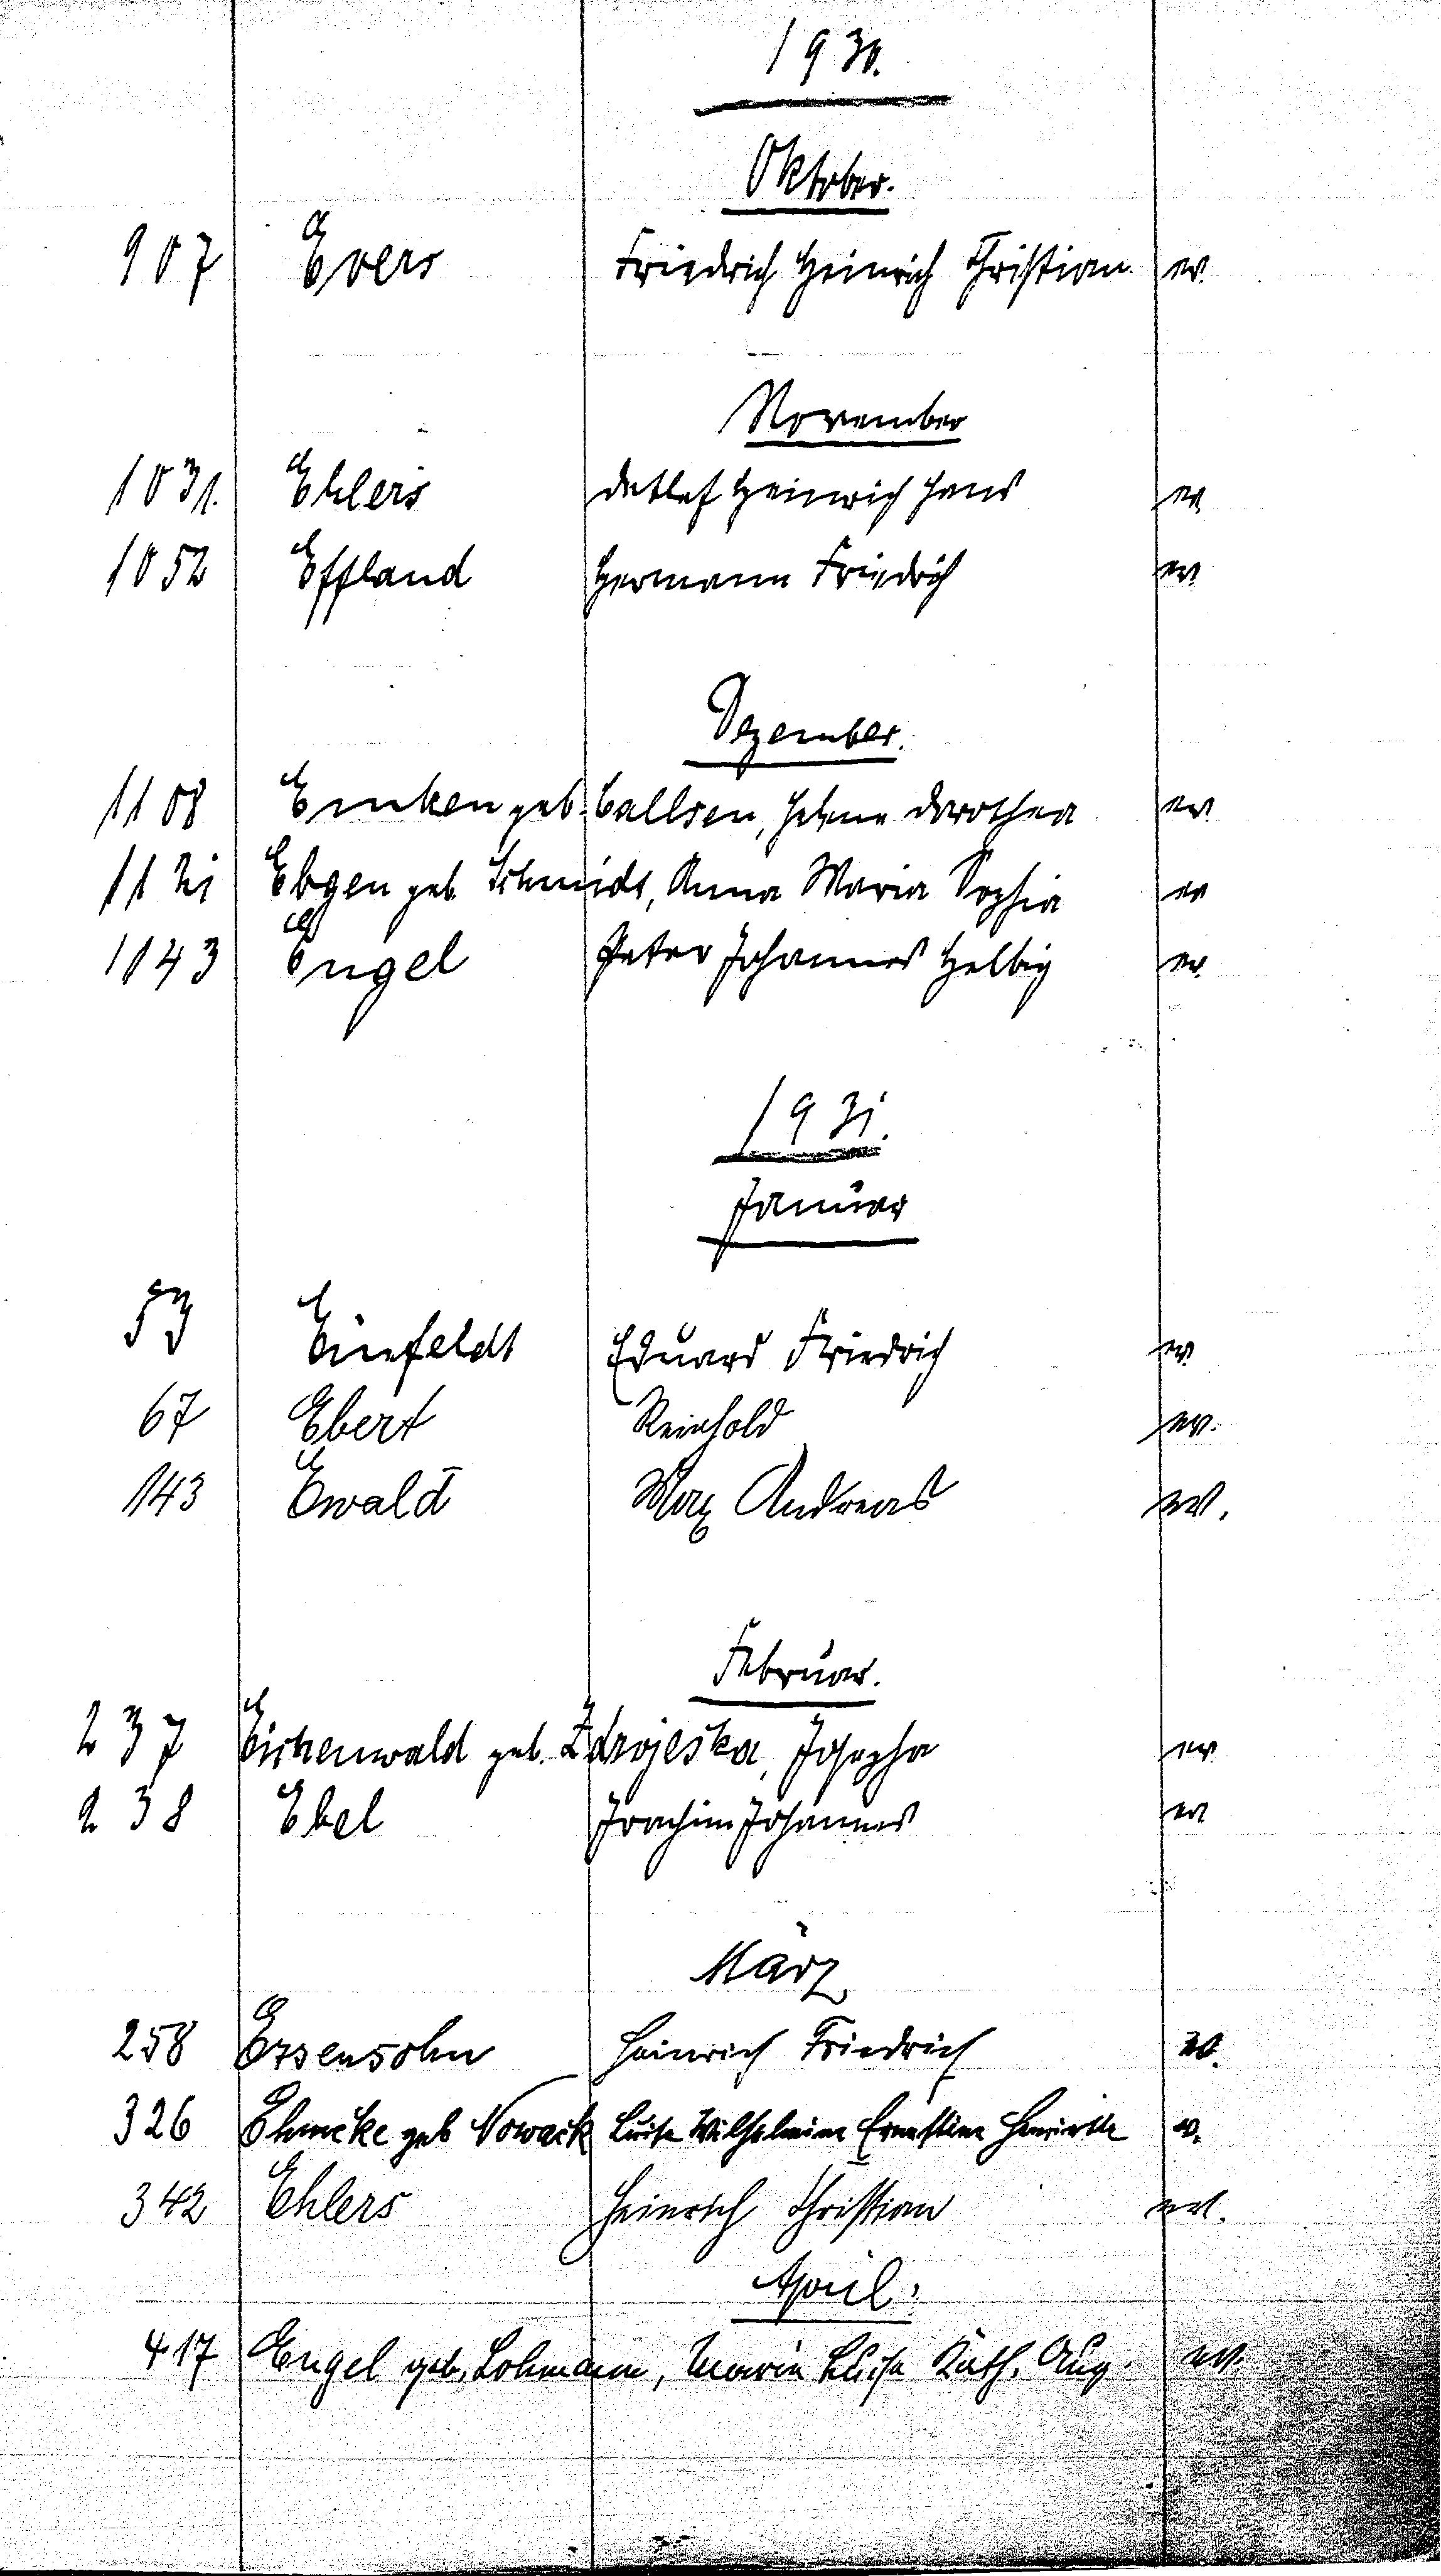 1930.
Oktober.
907 Evers Friedrich Heinrich Christian ev.
November
1031. Ehlers Detlef Heinrich Hans ev
1052 Effland Hermann Friedrich ev
Dezember.
1108 Emken geb. Callsen, Helene Dorothea ev
1121 Ebgen geb. Schmidt, Anna Maria Sophia ev
1143 Engel Peter Johannes Helbig ev.
1931.
Januar
53 Einfeldt Eduard Friedrich ev.
67 Ebert Reinhold ev.
143 Ewald Max Andreas ev.
Februar.
237 Eichenwald geb. Zdrojeska, Josepha ev
238 Ebel Joachim Johannes ev
März
258 Essensohn Heinrich Friedrich
326 Ehmcke geb Nowack Luise Wilhelmine Ernestine Henriette ev.
342 Ehlers Heinrich Christian
April.
417 Engel geb. Lohmann, Maria Luise Kath. Aug. ev.